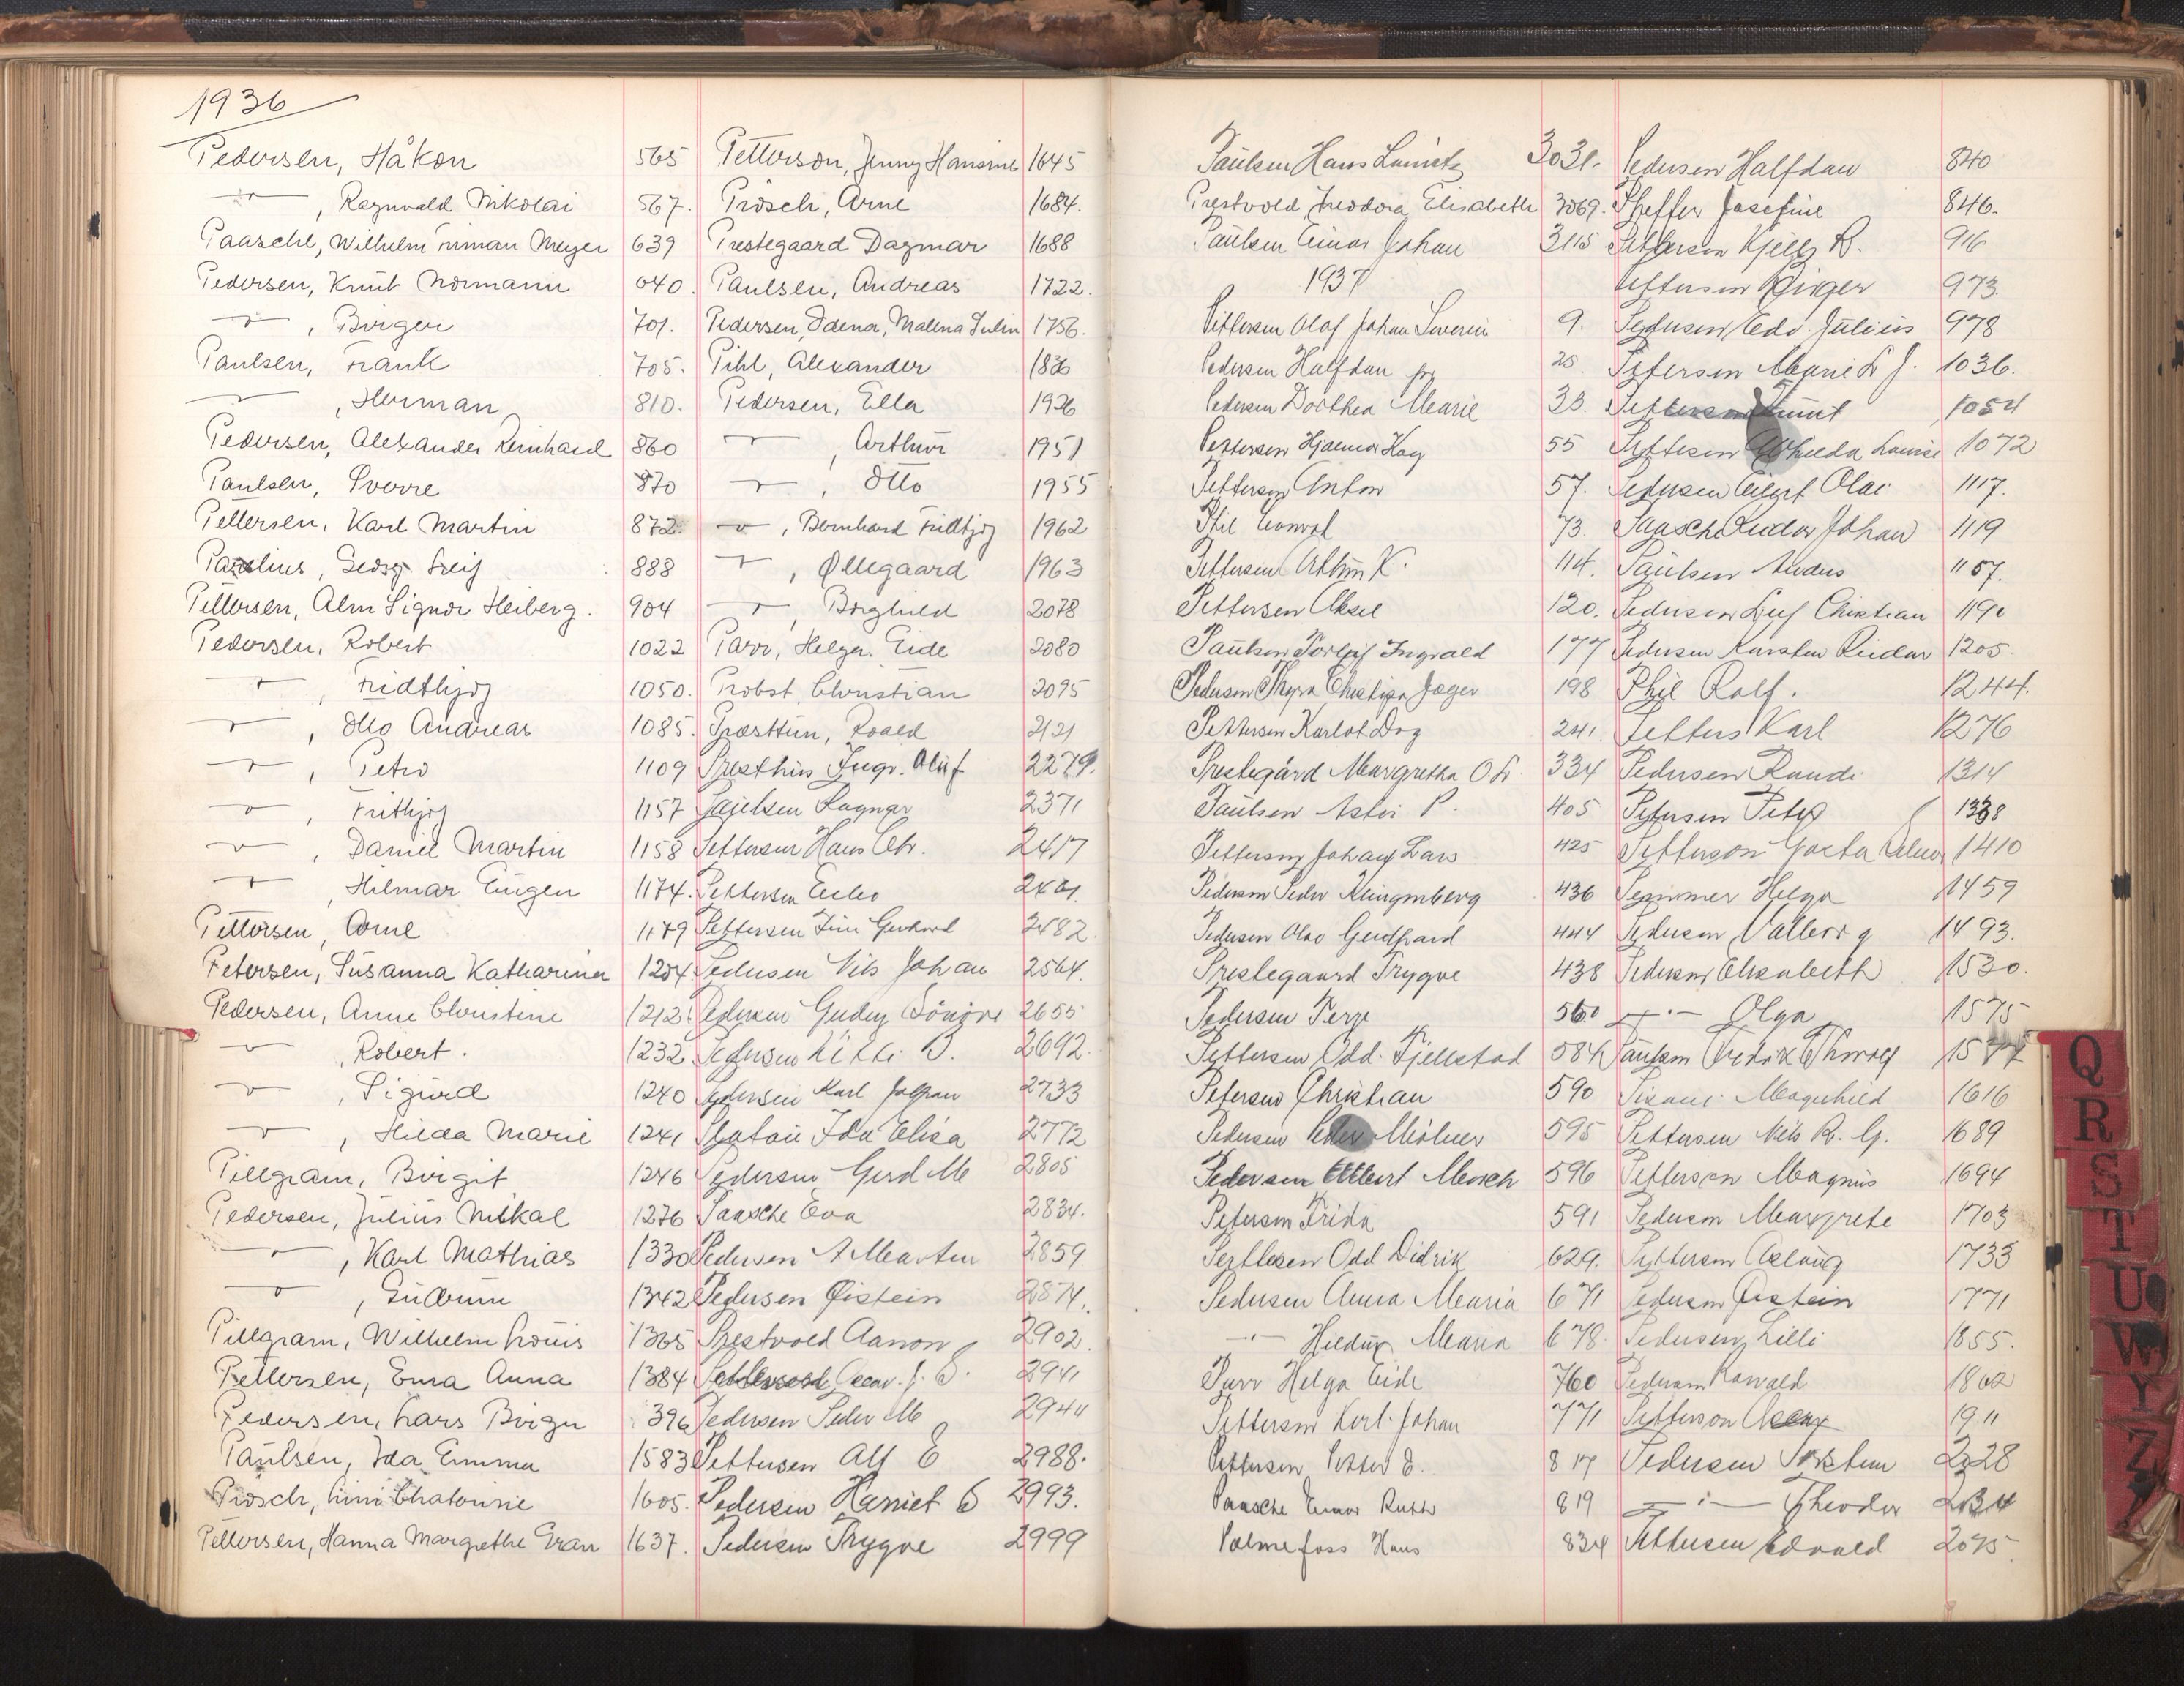 1936
Pedersen, Håkon 565
—"—, Ragnvald Nikolai 567.
Paasche, Wilhelm Meyer 639
Pedersen, Knut Normann 640.
—"—, Birger 701.
Paulsen, Frank 705.
—"—, Herman 810.
Pedersen, Alexander Reinhard 860
Paulsen, Sverre 870
Pettersen, Karl Martin 872.
888
Pettersen, Alm Signor Heiberg. 904
Pedersen, Robert 1022
—"—, Fridthjof 1050.
—"—, Otto Andreas 1085.
—"—, Petro 1109
—"—, Frithjof 1157
—"—, Daniel Martin 1158
—"—, Hilmar Eugen 1174.
Pettersen, Arne 1179
Petersen, Susanna Katharina 1204
Pedersen, Anne Christine 1212
—"—, Robert. 1232
—"—, Sigurd 1240
—"—, Hilda Marie 1241
Pillgram, Birgit 1246
Pedersen, Julius Mikal 1276
—"—, Karl Mathias 1330
—"—, Gudrun 1342
Pillgram, Wilhelm Louis 1365
Pettersen, Erna Anna 1384
Pedersen, Lars Birger 1396
Paulsen, Ida Emma 1583
Prösch, 1605.
Pettersen, Hanna Margrethe Gran 1637.
Petterson, Jenny Hansine 1645
Prösch, Arne 1684.
Prestegaard Dagmar 1688
Paulsen, Andreas 1722.
Pedersen, Odena, Malena 1756.
Pihl, Alexander 1836
Pedersen, Ella 1926
—"—, Arthur 1951
—"—, Otto 1955
—"—, Bernhard Fridthjof 1962
—"—, Øllegaard 1963
—"—, Borghild 2078
Parr, Helga. Eide 2080
Probst, Christian 2095
Præsttun, Roald 2121
Presthus Ingv. Oluf 2279.
Paulsen Ragnar 2371
Pettersen Hans Chr. 2417
Pettersen
Pettersen Gerhard 2482
Pedersen Nils Johan 2564.
Pedersen 2655
Pedersen Kitti B. 2692.
Pedersen Karl Johan 2733
Ida Elisa 2772
Pedersen Gerd M 2805
Paasche Eva 2834.
Pedersen A Marten 2859
Pedersen Øistein 2874.
Prestvold Aanon 2902.
2941
Pedersen Peder M 2944
Pettersen Alf E 2988.
Pedersen Harriet E 2993.
Pedersen Trygve 2999
Paulsen Hans 3031.
Prestvold Theodora Elisabeth 3069.
Paulsen Einar Johan 3115
1937
Pettersen Olaf Johan Severin 9.
Pedersen Halfdan 25
Pedersen Dorthea Marie 33.
Pettersen Hjalmar 55
Petterson Anton 57.
Phil 73.
Pettersen Arthur K. 114.
Pettersen Aksel 120.
Paulsen Ingvald 177
Pedersen Thyra Christiza Jæger 198
Pettersen Karlot Dog 241.
Prestegård Margretha 334
Paulsen P. 405
Petterson Johan Lars 425
Pedersen Peder Klingenberg 436
Pedersen Olav 444
Prestegaard Trygve 438
Pedersen 560
Pettersen Odd. Fjellstad 584
Petersen Christian 590
Pedersen 595
Pedersen 596
Petersen Frida 591
Odd Didrik 629.
Pedersen Anna Maria 671
—"— Maria 678.
Parr Helga Eide 760
Pettersen Karl Johan 771
Pettersen Petter E. 817
Paasche Einar Ruth 819
Palmefoss Hans 834
Pedersen Halfdan 840
Pheffer Josefine 846.
Petterson Kjell R. 916
Pettersen Birger 973.
Pedersen Edv. Julius 978
Petersen Marie L J. 1036.
Petterson Knut 1054
Pettesen Louise 1072
Pedersen Eilert Olai 1117.
Paasche Reidar Johan 1119
Paulsen Anders 1157.
Pedersen Leif Christian 1190
Pedersen Karsten Reidar 1205.
Phil Rolf. 1244.
Petters Karl 1276
Pedersen Randi 1314
Petersen 1338
Petterson 1410
Helga 1459
Pedersen Valborg 1493.
Pedersen Elisabeth 1530.
—"— Olga 1575
Paulsen Fredrik 15
Magnhild 1616
Pettersen Nils R. G. 1689
Petterson Magnus 1694
Pedersen Margrete 1703
Pettersen Aslaug 1733
Pedersen Øistein 1771
Pedersen Lilli 1855.
Pedersen 1862
Petterson 1911
Pedersen 2028
—"— Theodor
Pettersen Edvald 2075.
Q
R
S
T
U
W
Y
Z